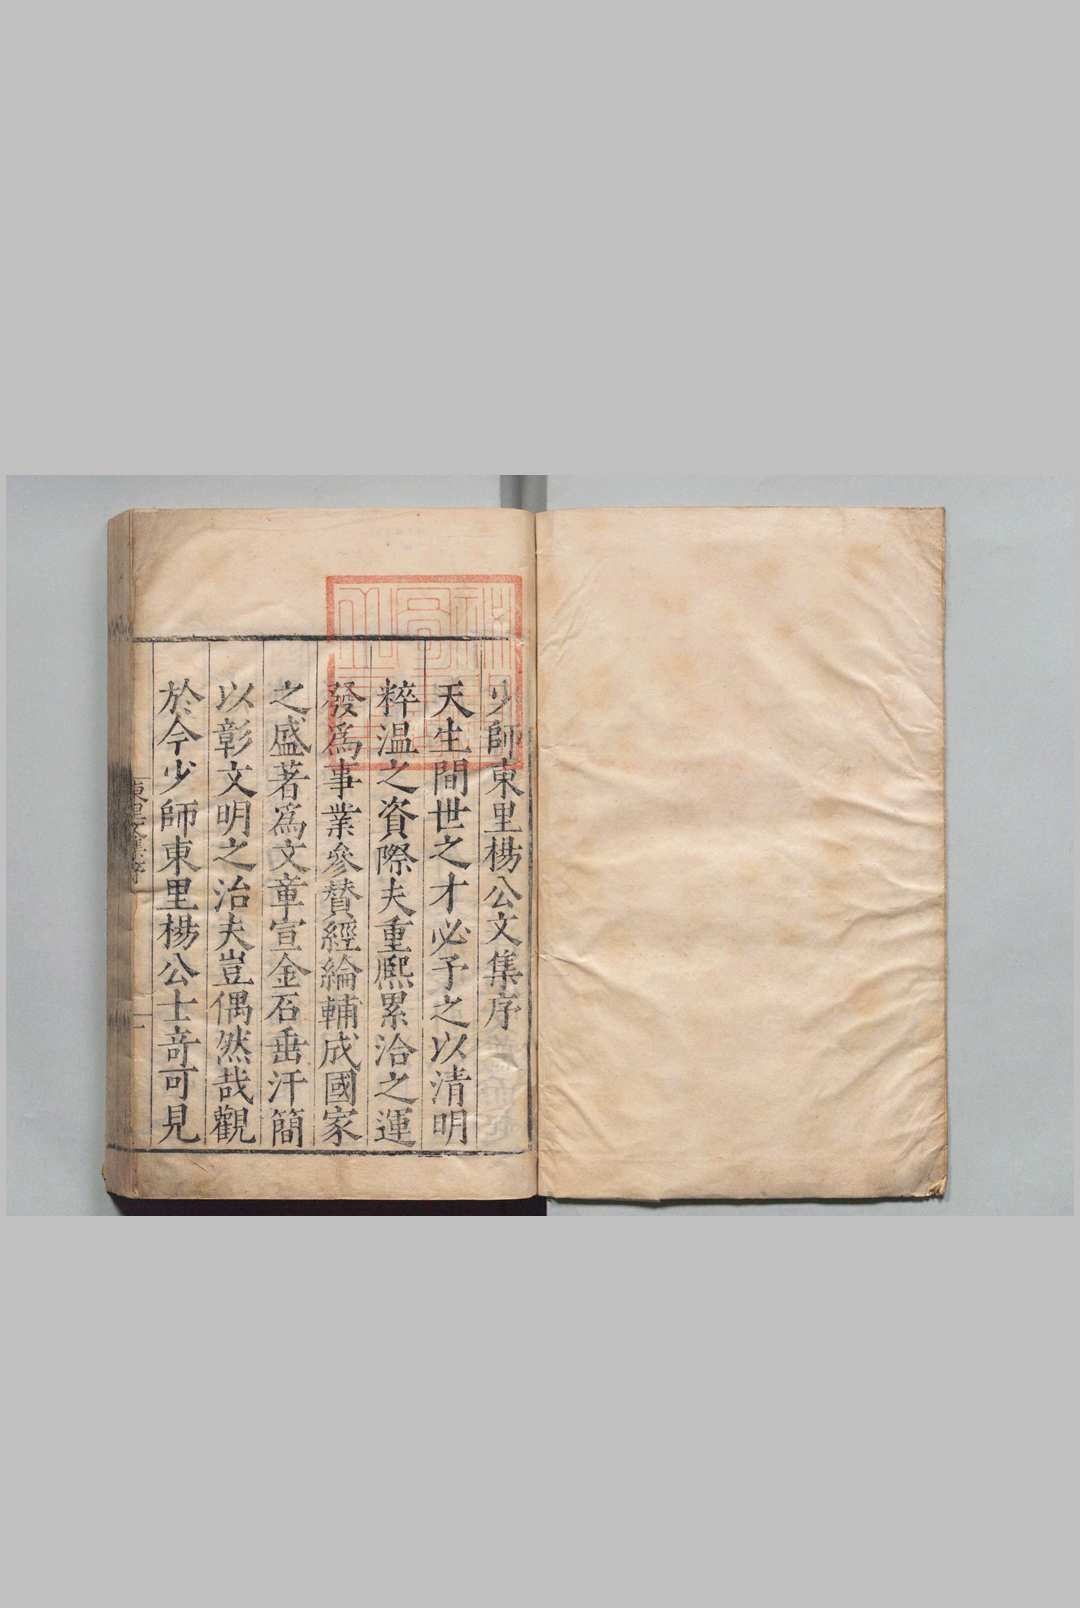 少師東里楊公文集序
天生間世之才必予之以清明
粹温之資際夫重熈累洽之運
發爲事業參賛經綸輔成國家
之盛著爲文章宣金石垂汗簡
以彰文明之治夫豈偶然哉觀
於今少師東里楊公士竒可見
東里文集序
一